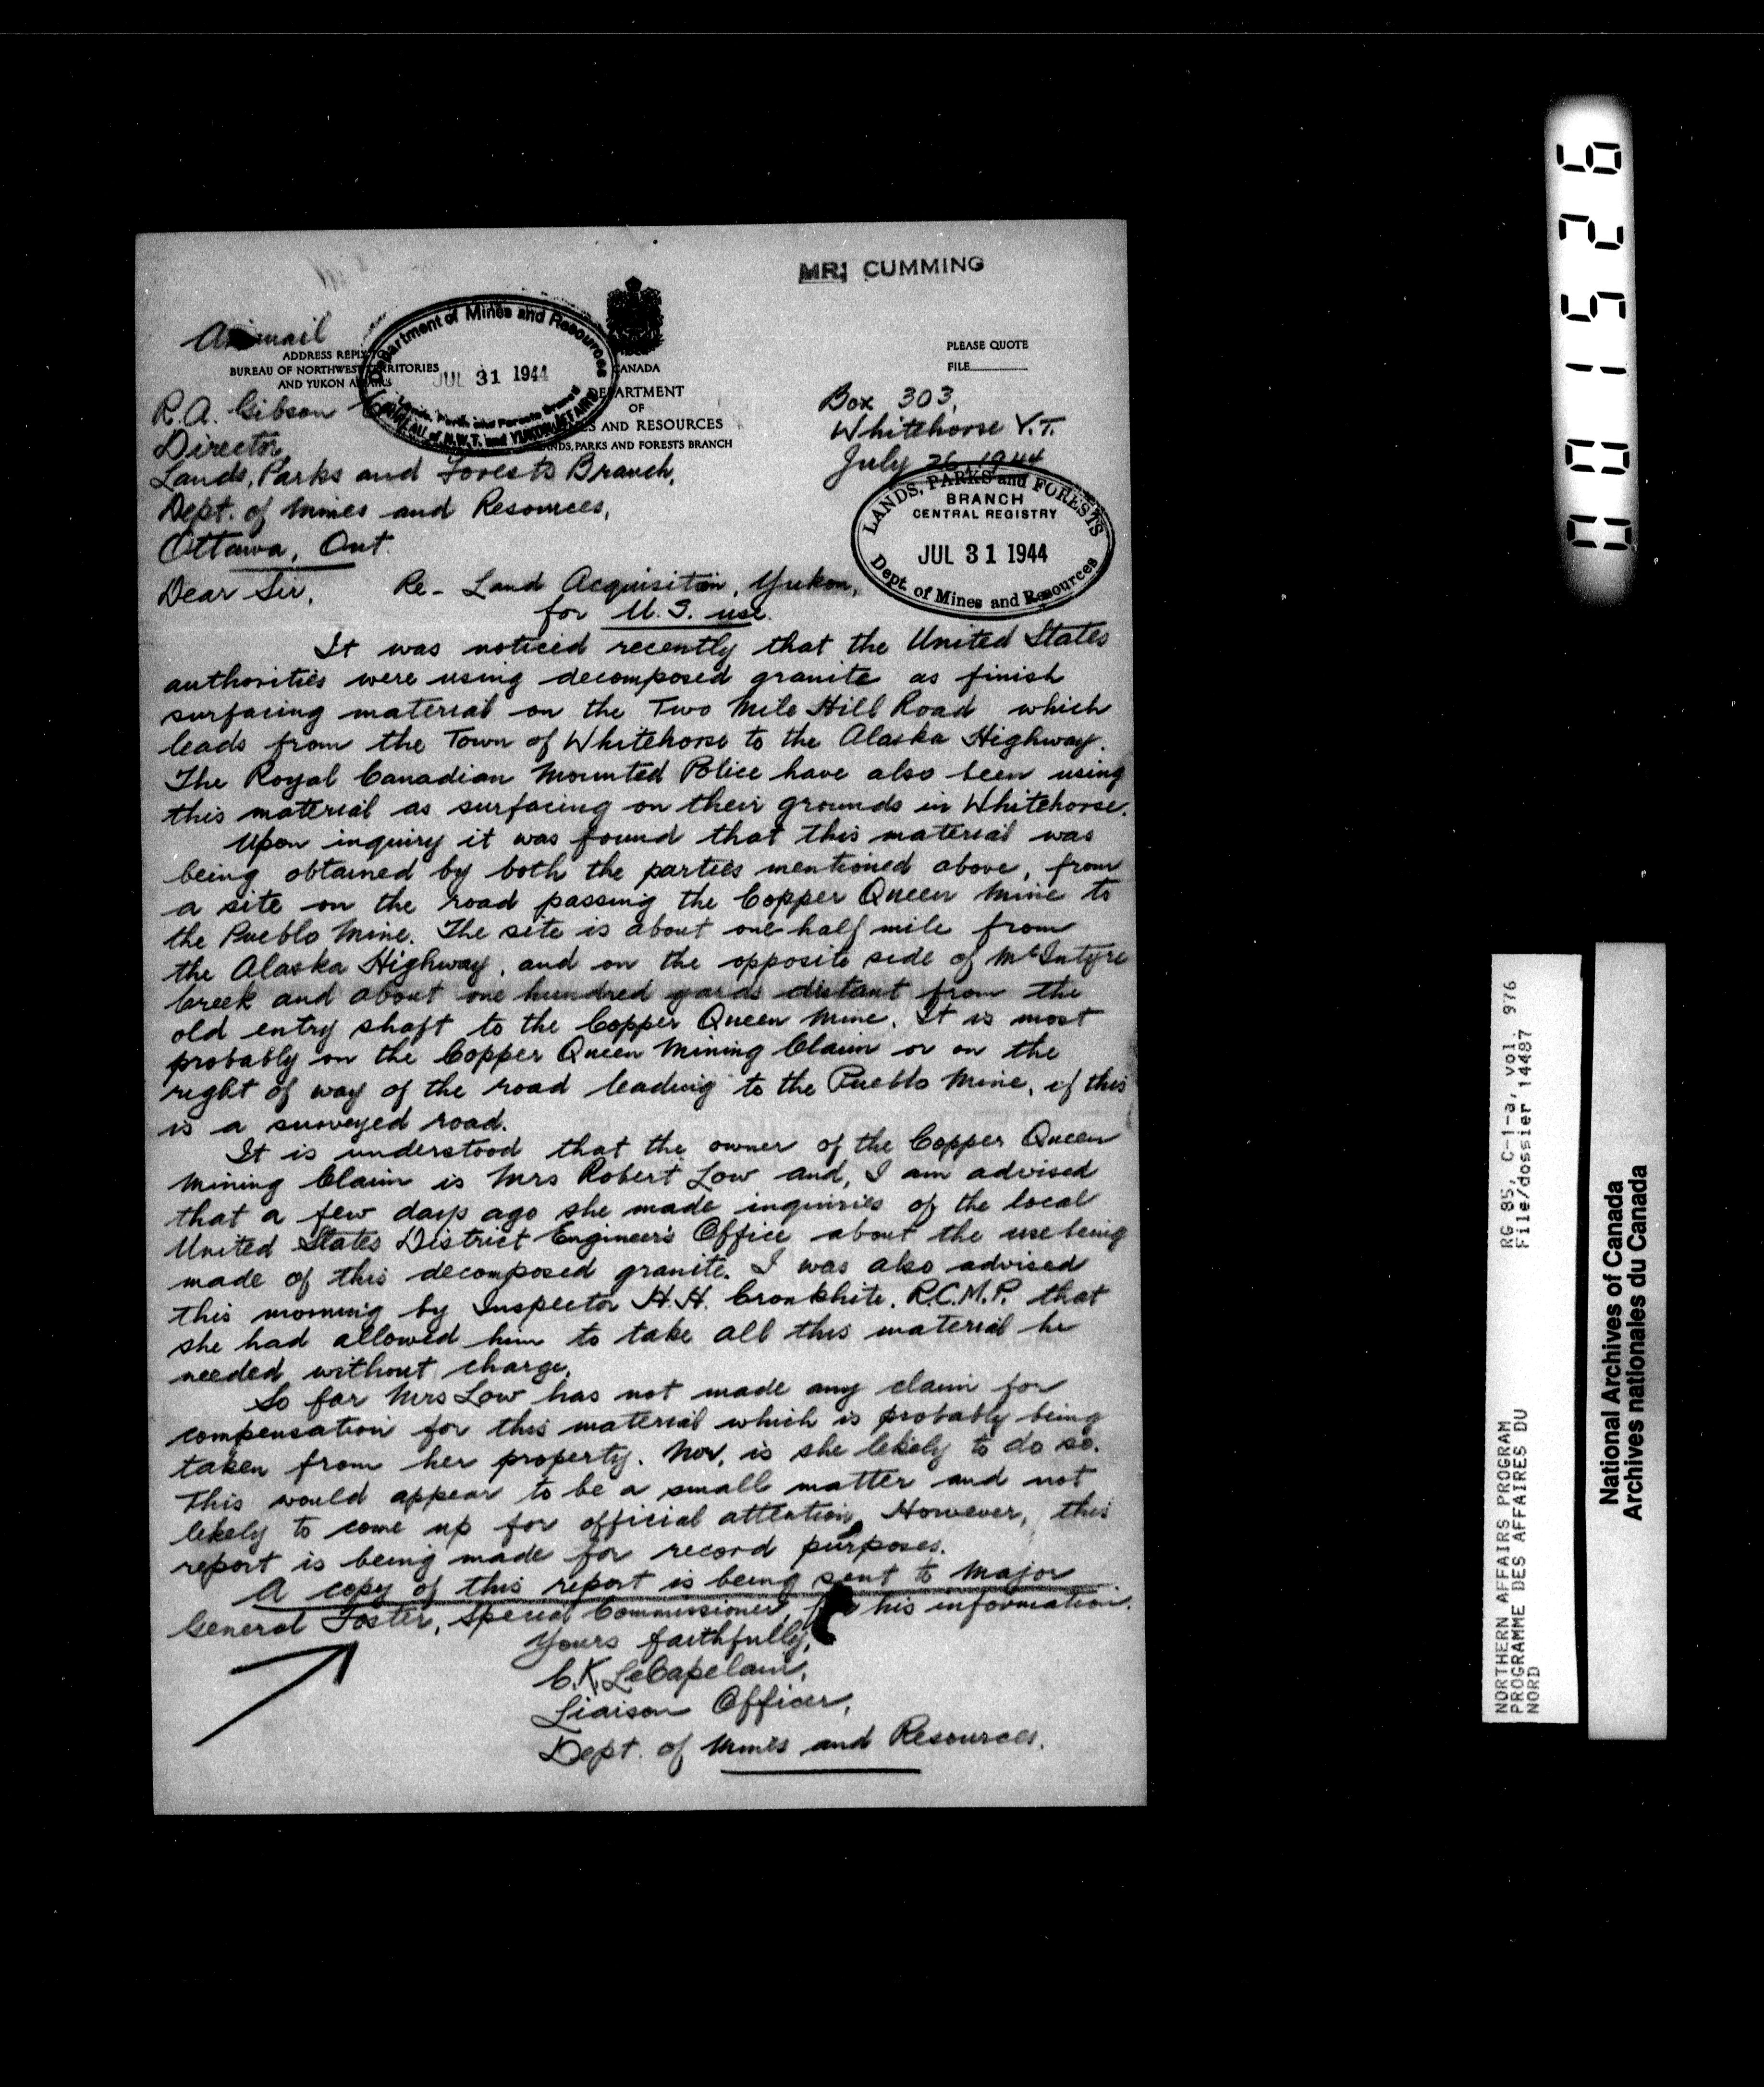 MR. CUMMING
Airmail
ADDRESS REPLY TO
BUREAU OF NORTHWEST TERRITORIES
AND YUKON AFFAIRS
Department of Mines and Resources
JUL 31 1944
Lands, Parks and Forests Branch
BUREAU of N.W.T. and YUKON AFFAIRS
CANADA
DEPARTMENT
OF
MINES AND RESOURCES
LANDS, PARKS AND FORESTS BRANCH
PLEASE QUOTE
FILE
Box 303,
Whitehorse Y.T.
July 26, 1944
R.A. Gibson
Director,
Lands, Parks and Forests Branch,
Dept. of Mines and Resources,
Ottawa, Ont.
LANDS, PARKS and FORESTS
BRANCH
CENTRAL REGISTRY
JUL 31 1944
Dept. of Mines and Resources
Dear Sir, Re - Land Acquisition, Yukon,
for U.S. use.
It was noticed recently that the United States
authorities were using decomposed granite as finish
surfacing material on the Two Mile Hill Road which
leads from the Town of Whitehorse to the Alaska Highway.
The Royal Canadian Mounted Police have also been using
this material as surfacing on their grounds in Whitehorse.
Upon inquiry it was found that this material was
being obtained by both the parties mentioned above, from
a site on the road passing the Copper Queen Mine to
the Pueblo Mine. The site is about one half mile from
the Alaska Highway, and on the opposite side of McIntyre
Creek and about one hundred yards distant from the
old entry shaft to the Copper Queen Mine. It is most
probably on the Copper Queen Mining Claim or on the
right of way of the road leading to the Pueblo Mine, if this
is a surveyed road.
It is understood that the owner of the Copper Queen
Mining Claim is Mrs Robert Low and, I am advised
that a few days ago she made inquiries of the local
United States District Engineer's Office about the use being
made of this decomposed granite. I was also advised
this morning by Inspector H.H. Cronkhite, R.C.M.P. that
she had allowed him to take all this material he
needed without charge.
So far Mrs Low has not made any claim for
compensation for this material which is probably being
taken from her property. Nor, is she likely to do so.
This would appear to be a small matter and not
likely to come up for official attention. However, this
report is being made for record purposes.
A copy of this report is being sent to Major
General Foster, Special Commissioner, for his information.
Yours faithfully,
C.K. LeCapelain,
Liaison Officer,
Dept. of Mines and Resources.
001526
RG 85, C-1-a, vol. 976
File/dossier 14487
NORTHERN AFFAIRS PROGRAM
PROGRAMME DES AFFAIRES DU
NORD
National Archives of Canada
Archives nationales du Canada